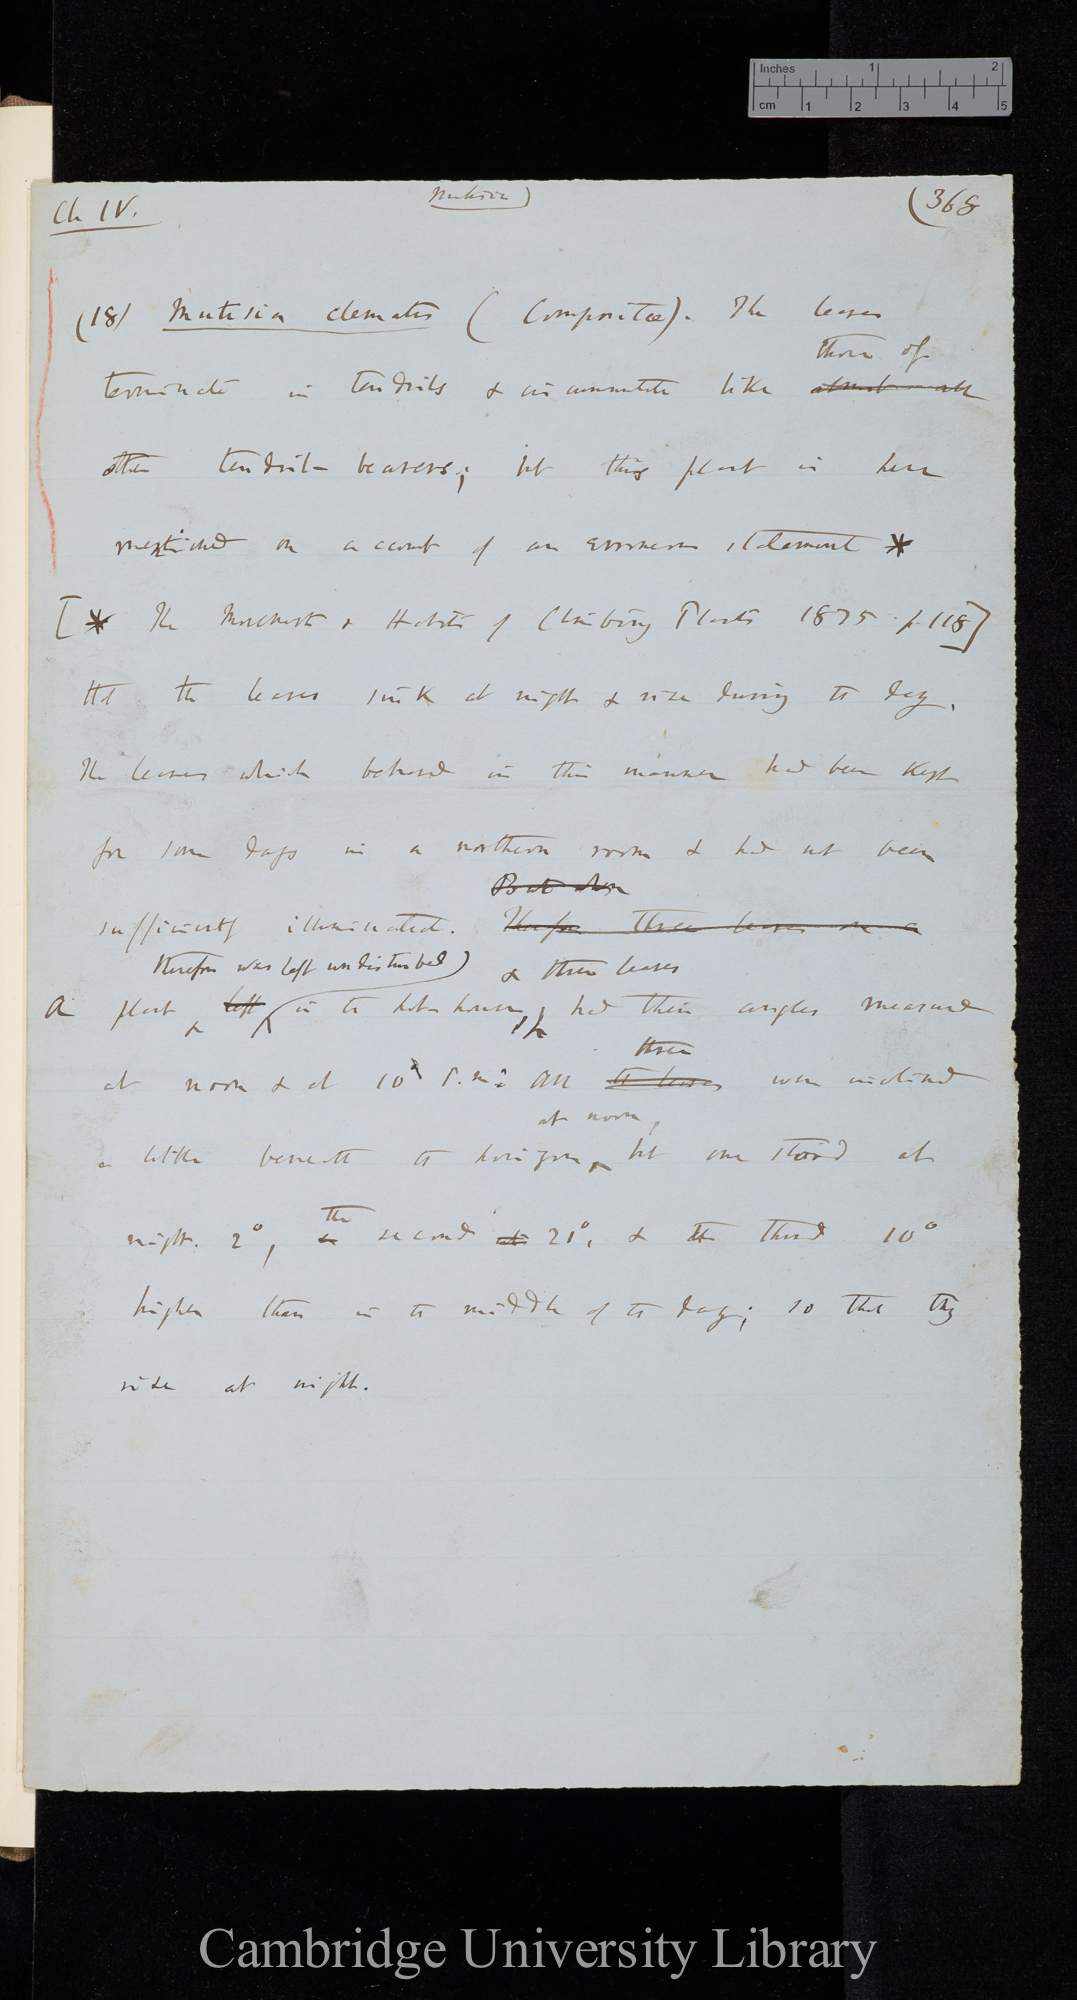 Inches 1 2
cm 1 2 3 4 5
Ch IV.
Mutisia)
(368
(18) Mutisia clematis (Compositæ). The leaves
those of
terminate in tendrils & circumnutate like almost all
other tendril-bearers; but this plant is here
mentioned on account of an erroneous statement *
[* The Movements & Habits of Climbing Plants 1875 p. 118]
tht the leaves sink at night & rise during the day.
The leaves which behaved in this manner had been kept
for some days in a northern room & had not been
But when
sufficiently illuminated. Therefore three leaves on a
therefore was left undisturbed) & three leaves
A plant left in the hot-house, had their angles measured
three
at noon & at 10 P.m: All the leaves were inclined
at noon,
a little beneath the horizon, but one stood at
the
night 2°, a second at 21°, & the third 10°
higher than in the middle of the day; so that they
rise at night.
Cambridge University Library